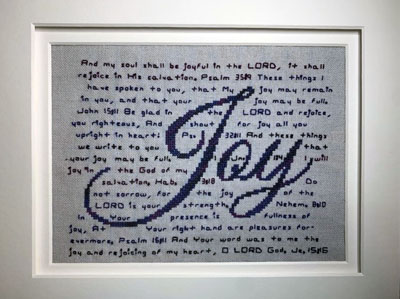 And my soul shall be joyful in the LORD, it shall
rejoice in His salvation. Psalm 35:9 These things I
have spoken to you, that My joy may remain
in you, and that your joy may be full.
John 15:11 Be glad in the LORD and rejoice,
you righteous, And shout for joy all you
upright in heart! 32:11 And these things
we write to you that
your joy may be full. 1:4 I will
joy in the God of my
salvation. Hab. 3:18 Do
not sorrow, for the joy of the
LORD is your strength. Nehem. 8:10
In Your presence is fullness of
joy, At Your right hand are pleasures for-
evermore. Psalm 16:11 And Your word was to me the
joy and rejoicing of my heart, O LORD God, Je. 15:16
Joy